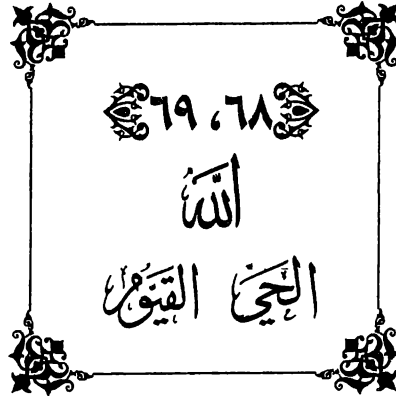 ٦٨، ٦٩
اللَّهُ
الحَيُّ القَيُّومُ